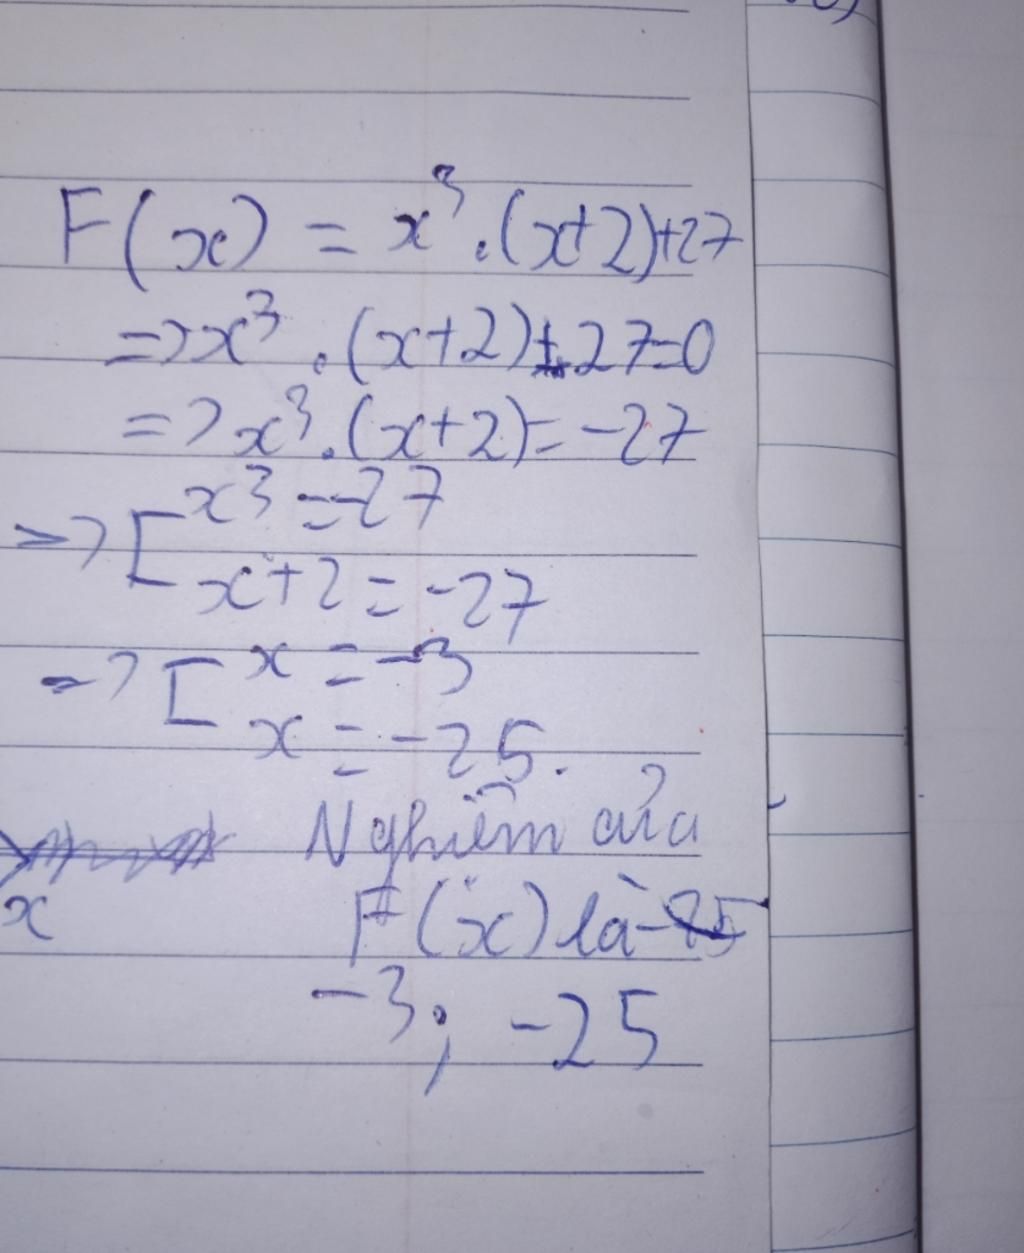 F(x) = x³.(x+2)+27
=>x³.(x+2)+27=0
=>x³.(x+2)=-27
=>[x³=-27
x+2=-27
=>[x=-3
x=-25.
Nghiệm của
x F(x) là
-3; -25